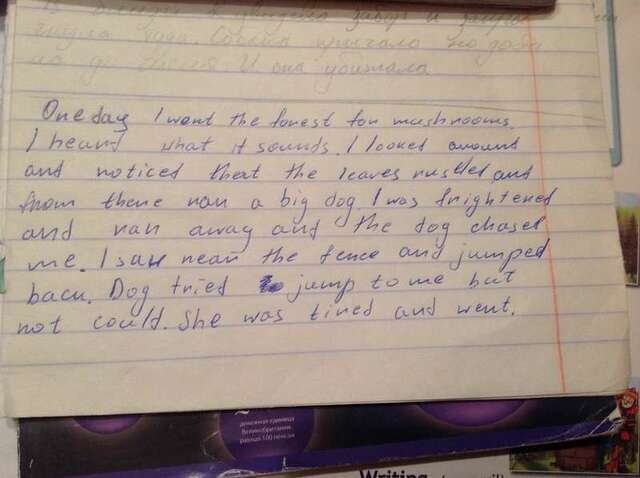 увидела забор и
туда. Собака прыгала но
И она
One day I went the forest for mushrooms.
I heard what it sounds. I looked around
and noticed that the leaves rustled and
from there ran a big dog. I was frightened
and ran away and the dog chased
me. I saw near the fence and jumped
back. Dog tried to jump to me but
not could. She was tired and went.
денежная единица
Великобритании
равная 100 пенсам
Writing